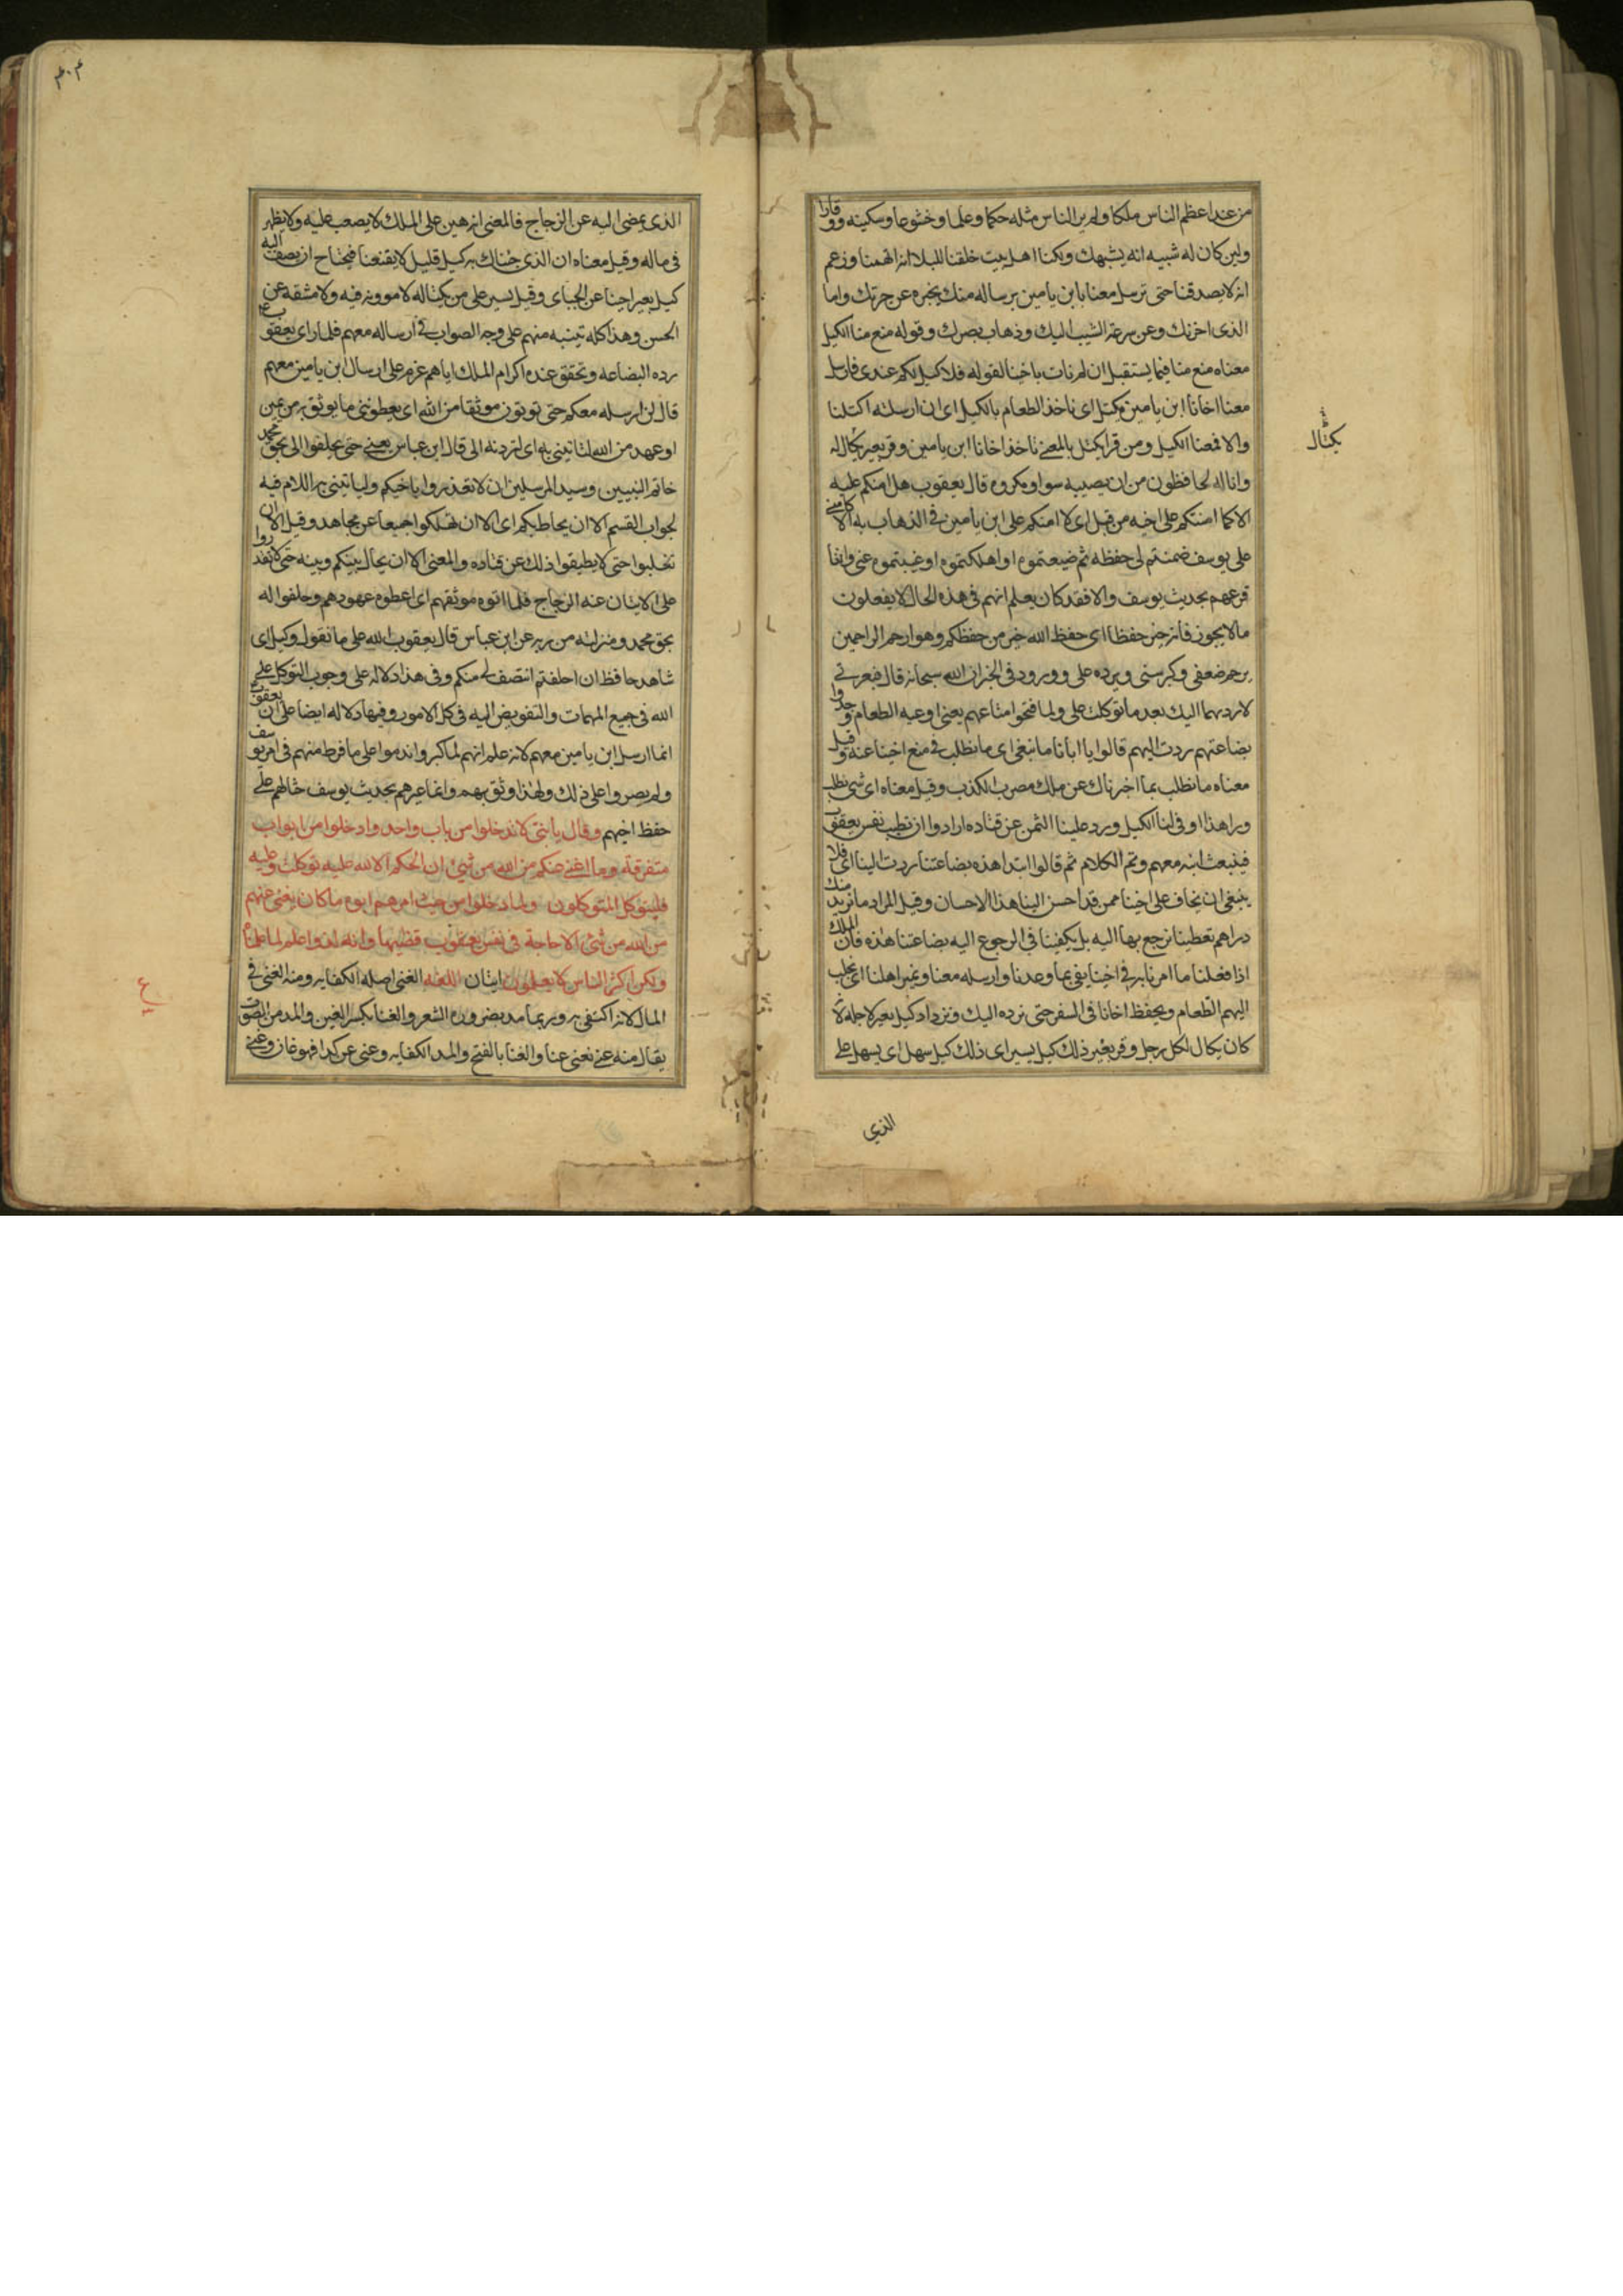 من عند اعظم الناس ملكا ولم ير الناس مثله حكما وعلما وخشوعا وسكينه ووقارا
ولين كان له شبيه انه يشبهك ولكنا اهل بيت خلقنا للبلا انه اتهمنا وزعم
انه لا يصدقنا حتى ترسل معنا بابن يامين برساله منك يخبره عن حزنك واما
الذى احزنك وعن سرعة الشيب اليك وذهاب بصرك وقوله منع منا الكيل
معناه منع منا فيما يستقبل ان لم نات باخينا لقوله فلا كيل لكم عندى فارسل
معنا اخانا ابن يامين نكتل اى ناخذ الطعام بالكيل اى ان ارسلته اكتلنا
والا فمنعنا الكيل ومن قرا يكتل بالمعنى ناخذ اخانا ابن يامين وقر بعير يكال له
يكتال
وانا له لحافظون من ان يصيبه سوا ومكروه قال يعقوب هل امنكم عليه
الا كما امنتكم على اخيه من قبل اى لا امنكم على ابن يامين فى الذهاب به الا كامنى
على يوسف ضمنتم لى حفظه ثم ضيعتموه او اهلكتموه او غيبتموه عنى وانما
قرعهم بحديث يوسف والا فقد كان يعلم انهم فى هذه الحال لا يفعلون
ما لا يجوز فالله خير حفظا اى حفظ الله خير من حفظكم وهو ارحم الراحمين
يرحم ضعفى وكبر سنى ويرده على وورود فى الخبر ان الله سبحانه قال فبعزتى
لاردنهما اليك بعد ما توكلت على ولما فتحوا متاعهم يعنى اوعيه الطعام وجدوا
بضاعتهم ردت اليهم قالوا يا ابانا ما نبغى اى ما نطلب فى منع اخينا عنه وقيل
معناه ما نطلب بما اخبرناك عن ملك مصر بالكذب وقيل معناه اى شى نطلب
ورا هذا اوفى لنا الكيل ورد علينا الثمن عن قتاده ارادوا ان تطيب نفس يعقوب
فيبعث ابنه معهم وتم الكلام ثم قالوا ابتدا هذه بضاعتنا ردت الينا اى فلا
ينبغى ان يخاف على اخينا ممن قد احسن الينا هذا الاحسان وقيل المراد ما نريد منك
دراهم تعطينا نرجع بها اليه بل يكفينا فى الرجوع اليه بضاعتنا هذه فان الملك
اذا فعلنا ما امرنا به فى اخينا يفى بما وعدنا وارسله معنا ونمير اهلنا اى نجلب
اليهم الطعام ونحفظ اخانا فى السفر حتى نرده اليك ونزداد كيل بعير لاجله لانه
كان يكال لكل رجل وقر بعير ذلك كيل يسير اى ذلك كيل سهل اى يسهل على
الذى
٤٠٤
الذى يمضى اليه عن الزجاج فالمعنى انه هين على الملك لا يصعب عليه ولا يظهر
فى ماله وقيل معناه ان الذى جئناك به كيل قليل لا يقنعنا فيحتاج ان نضيف اليه
كيل بعير اخينا عن الجبائى وقيل يسير على من يكتاله لا موونه فيه ولا مشقه عن
الحسن وهذا كله تنبيه منهم على وجه الصواب فى ارساله معهم فلما راى يعقوب ع
رده البضاعه وتحقق عنده اكرام الملك اياهم عزم على ارسال ابن يامين معهم
قال لن ارسله معكم حتى توتون موثقا من الله اى يعطوننى ما يوثق به من يمين
او عهد من الله لتاتننى به اى لتردنه الى قال ابن عباس يعنى حتى تحلفوا الى بحق محمد
خاتم النبيين وسيد المرسلين ان لا تغدروا باخيكم ولياتيننى به اللام فيه
لجواب القسم الا ان يحاط بكم اى الا ان تهلكوا جميعا عن مجاهد وقيل الا ان
تغلبوا حتى لا يطيقوا ذلك عن قتاده والمعنى الا ان يحال بينكم وبينه حتى لا تقدروا
على الاتيان عنه الزجاج فلما اتوه موثقهم اى اعطوه عهودهم وحلفوا له
بحق محمد ومنزلته من ربه عن ابن عباس قال يعقوب الله على ما نقول وكيل اى
شاهد حافظ ان اخلفتم انتصف لى منكم وفى هذا دلاله على وجوب التوكل على
الله فى جميع المهمات والتفويض اليه فى كل الامور وفيها دلاله ايضا على ان يعقوب ع
انما ارسل ابن يامين معهم لانه علم انهم لما كبروا ندموا على ما فرط منهم فى امر يوسف
ولم يصروا على ذلك ولهذا وثق بهم وانما عيرهم بحديث يوسف حثا لهم على
حفظ اخيهم وقال يا بنى لا تدخلوا من باب واحد وادخلوا من ابواب
متفرقة وما اغنى عنكم من الله من شئ ان الحكم الا لله عليه توكلت وعليه
فليتوكل المتوكلون ولما دخلوا من حيث امرهم ابوهم ما كان يغنى عنهم
من الله من شئ الا حاجة فى نفس يعقوب قضيها وانه لذو اعلم لما علمناه
ولكن اكثر الناس لا يعلمون ايتان اللغه الغنى اصله الكفايه ومنه الغنى فى
المال لانه اكتفى به وربما مد بضروره الشعر والغنا بكسر الغين والمد من الصوت
يقال منه غنى تغنى غنا والغنا بالفتح والمد الكفايه وغنى عن كذا فهو غان وغنى